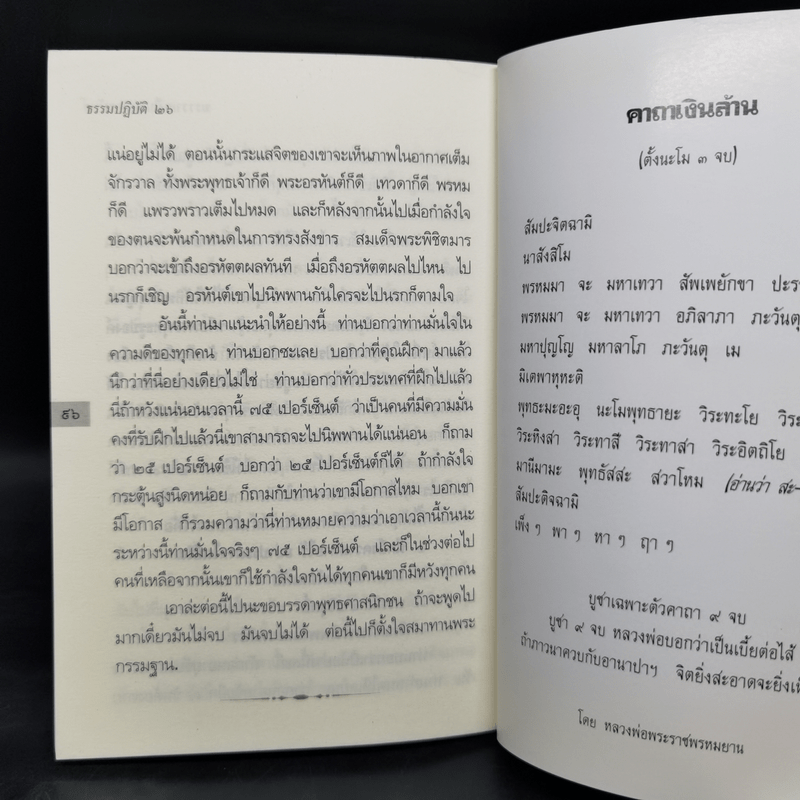 ธรรมปฏิบัติ ๒๖
แน่อยู่ไม่ได้ ตอนนั้นกระแสจิตของเขาจะเห็นภาพในอากาศเต็ม
จักรวาล ทั้งพระพุทธเจ้าก็ดี พระอรหันต์ก็ดี เทวดาก็ดี พรหม
ก็ดี แพรวพราวเต็มไปหมด และก็หลังจากนั้นไปเมื่อกำลังใจ
ของตนจะพ้นกำหนดในการทรงสังขาร สมเด็จพระพิชิตมาร
บอกว่าจะเข้าถึงอรหัตตผลทันที เมื่อถึงอรหัตตผลไปไหน ไป
นรกก็เชิญ อรหันต์เขาไปนิพพานกันใครจะไปนรกก็ตามใจ
อันนี้ท่านมาแนะนำให้อย่างนี้ ท่านบอกว่าท่านมั่นใจใน
ความดีของทุกคน ท่านบอกซะเลย บอกว่าที่คุณฝึกๆ มาแล้ว
นึกว่าที่นี่อย่างเดียวไม่ใช่ ท่านบอกว่าทั่วประเทศที่ฝึกไปแล้ว
นี่ถ้าหวังแน่นอนเวลานี้ ๗๕ เปอร์เซ็นต์ ว่าเป็นคนที่มีความมั่น
คงที่รับฝึกไปแล้วนี่เขาสามารถจะไปนิพพานได้แน่นอน ก็ถาม
ว่า ๒๕ เปอร์เซ็นต์ บอกว่า ๒๕ เปอร์เซ็นต์ก็ได้ ถ้ากำลังใจ
กระตุ้นสูงนิดหน่อย ก็ถามกับท่านว่าเขามีโอกาสไหม บอกเขา
มีโอกาส ก็รวมความว่านี่ท่านหมายความว่าเอาเวลานี้กันนะ
ระหว่างนี้ท่านมั่นใจจริงๆ ๗๕ เปอร์เซ็นต์ และก็ในช่วงต่อไป
คนที่เหลือจากนั้นเขาก็ใช้กำลังใจกันได้ทุกคนเขาก็มีหวังทุกคน
เอาล่ะต่อนี้ไปนะขอบรรดาพุทธศาสนิกชน ถ้าจะพูดไป
มากเดี๋ยวมันไม่จบ มันจบไม่ได้ ต่อนี้ไปก็ตั้งใจสมาทานพระ
กรรมฐาน.
๙๖
คาถาเงินล้าน
(ตั้งนะโม ๓ จบ)
สัมปะจิตฉามิ
นาสังสิโม
พรหมมา จะ มหาเทวา สัพเพยักขา ปะรา
พรหมมา จะ มหาเทวา อภิลาภา ภะวันตุ
มหาปุญโญ มหาลาโภ ภะวันตุ เม
มิเตพาหุหะติ
พุทธะมะอะอุ นะโมพุทธายะ วิระทะโย วิระ
วิระหิงสา วิระทาสี วิระทาสา วิระอิตถิโย
มานีมามะ พุทธัสสะ สวาโหม (อ่านว่า สะ-
สัมปะติจฉามิ
เพ็ง ๆ พา ๆ หา ๆ ฤา ๆ
บูชาเฉพาะตัวคาถา ๙ จบ
บูชา ๙ จบ หลวงพ่อบอกว่าเป็นเบี้ยต่อไส้
ถ้าภาวนาควบกับอานาปาฯ จิตยิ่งสะอาดจะยิ่งเ
โดย หลวงพ่อพระราชพรหมยาน